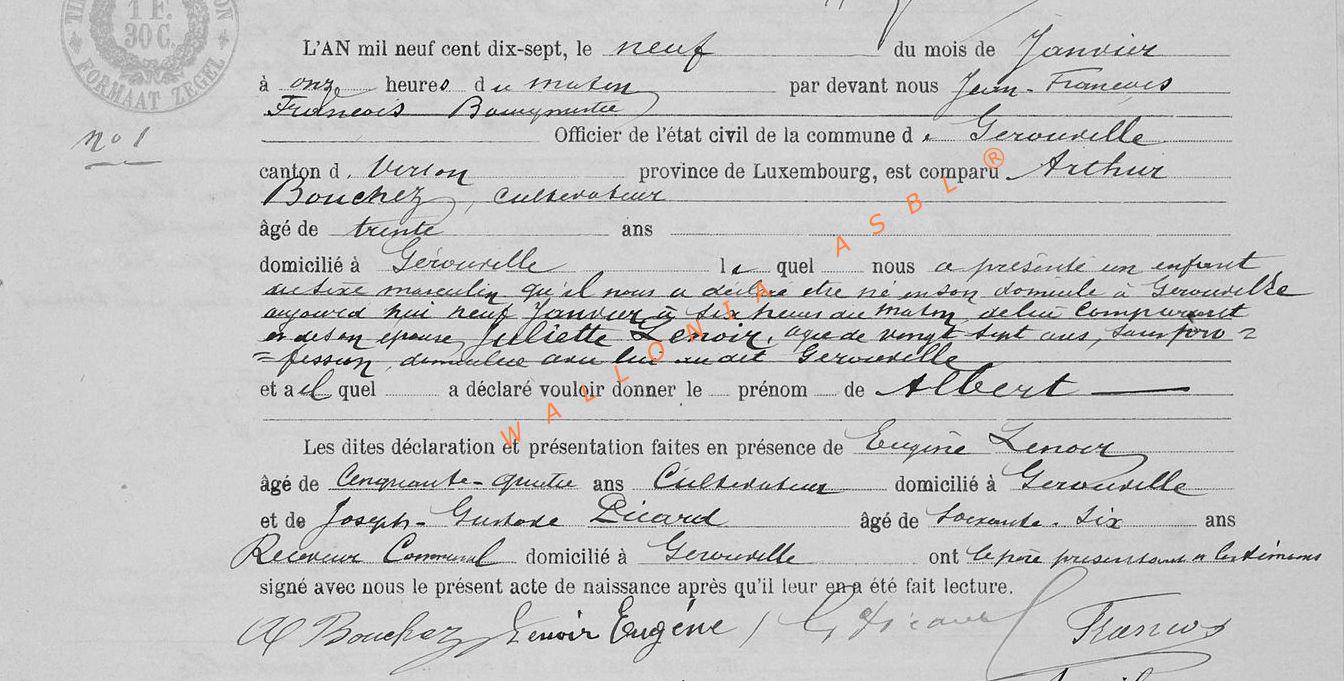 1 F.
30 C.
FORMAAT ZEGEL
no 1
L'AN mil neuf cent dix-sept, le neuf du mois de Janvier
à onze heures du matin par devant nous Jean-Francois
Francois Bourgmestre
Officier de l'état civil de la commune de Gerouville
canton d. Virton province de Luxembourg, est comparu Arthur
Bouchez, cultivateur
âgé de trente ans
domicilié à Gérouville le quel nous a présenté un enfant
du sexe masculin qu'il nous a déclaré être né en son domicile à Gerouville
aujourd'hui neuf Janvier à six heures du matin, de lui comparant
et de son épouse Juliette Lenoir, agée de vingt sept ans, sans pro=
=fession, domiciliée avec lui audit Gerouville
et a el quel a déclaré vouloir donner le prénom de Albert
Les dites déclaration et présentation faites en présence de Eugène Lenoir
âgé de Cinquante-quatre ans Cultivateur domicilié à Gerouville
et de Joseph-Gustave Picard âgé de Soixante-six ans
Receveur Communal domicilié à Gerouville ont le père présentant et les témoins
signé avec nous le présent acte de naissance après qu'il leur en a été fait lecture.
A Bouchez Lenoir Eugène G Picard Francois
WALLONIA ASBL ®